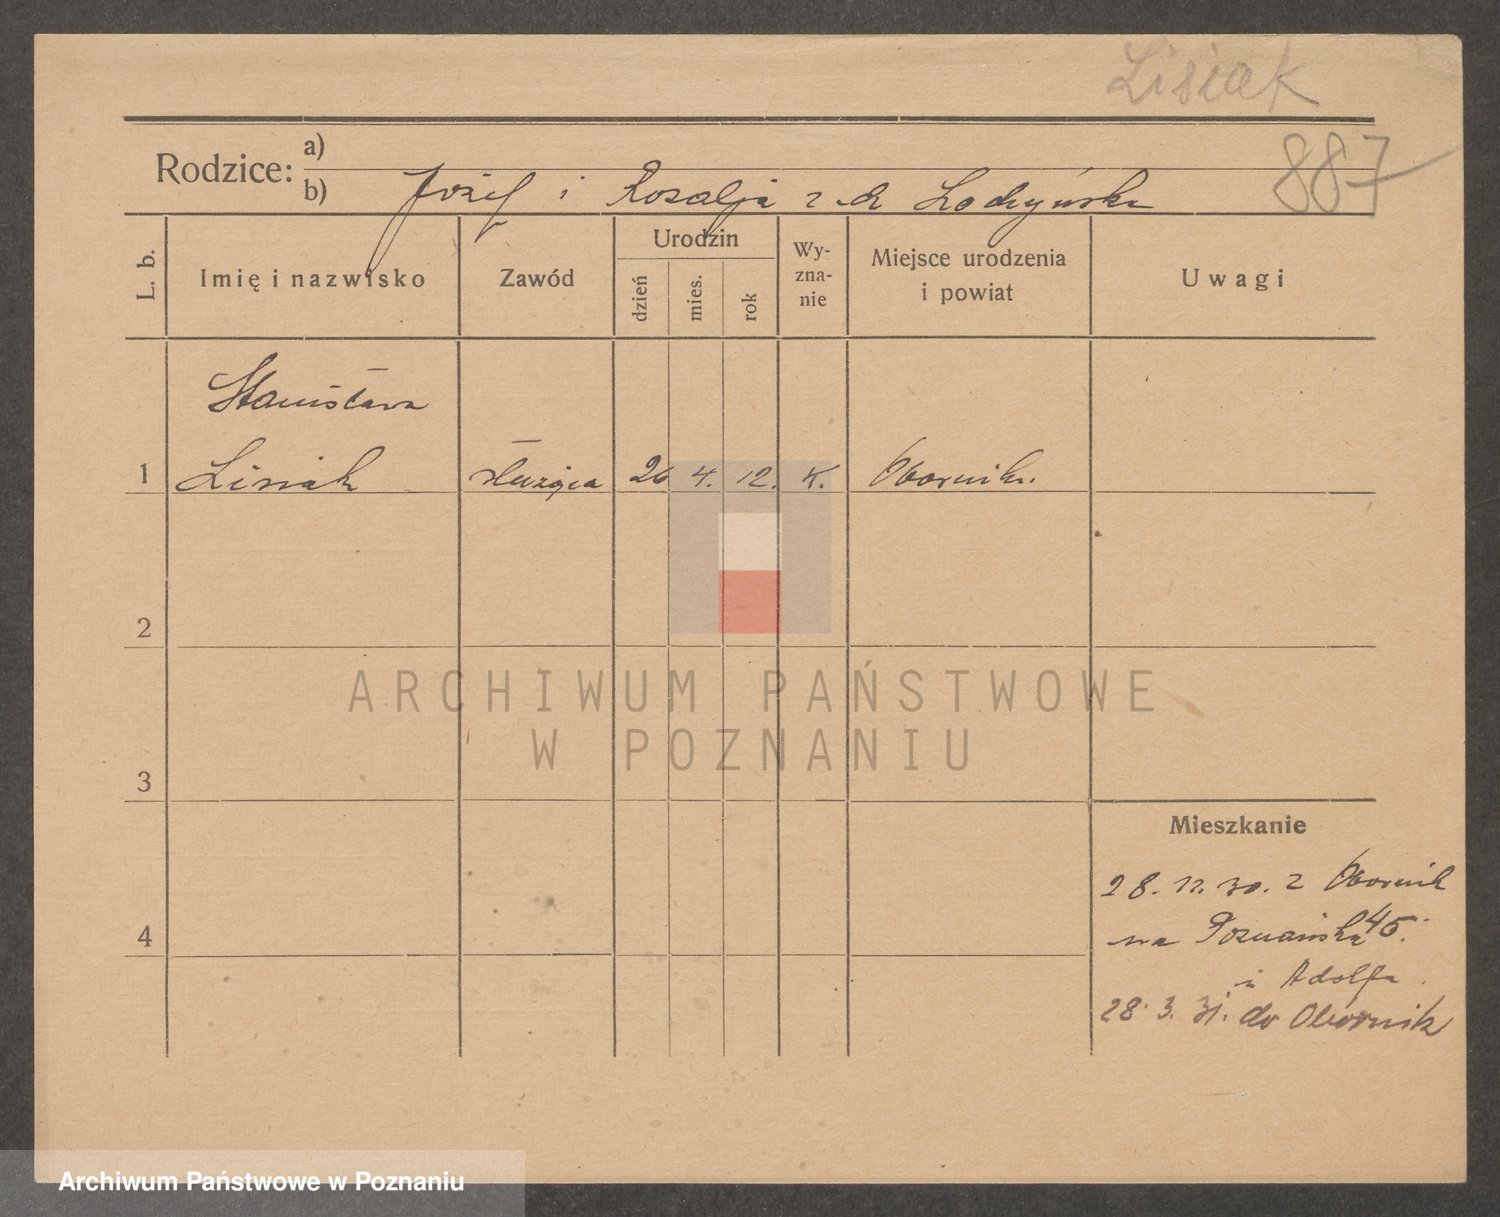 Lisiak
887
Rodzice:
a)
b) Józef i Rozalja z d.
L. b.
Imię i nazwisko
Zawód
Urodzin
dzień
mies.
rok
Wy-
zna-
nie
Miejsce urodzenia
i powiat
Uwagi
Stanisława
1 Lisiak służąca 26 4. 12. K. Oborniki.
2
3
4
Mieszkanie
28. 11. 30. z Obornik
na Poznańska 45.
u Adolfa
28. 3. 31. do Obornik
ARCHIWUM PAŃSTWOWE
W POZNANIU
Archiwum Państwowe w Poznaniu